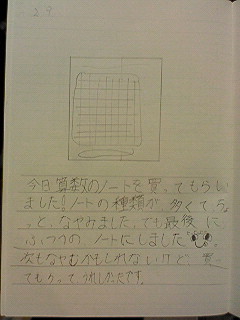 2.9
今日算数のノートを買ってもらい
ました！ノートの種類が多くてちょ
っと、なやみました。でも最後に
ふつうの、ノートにしました
次もなやむかもしれないけど、買っ
てもらって、うれしかったです。